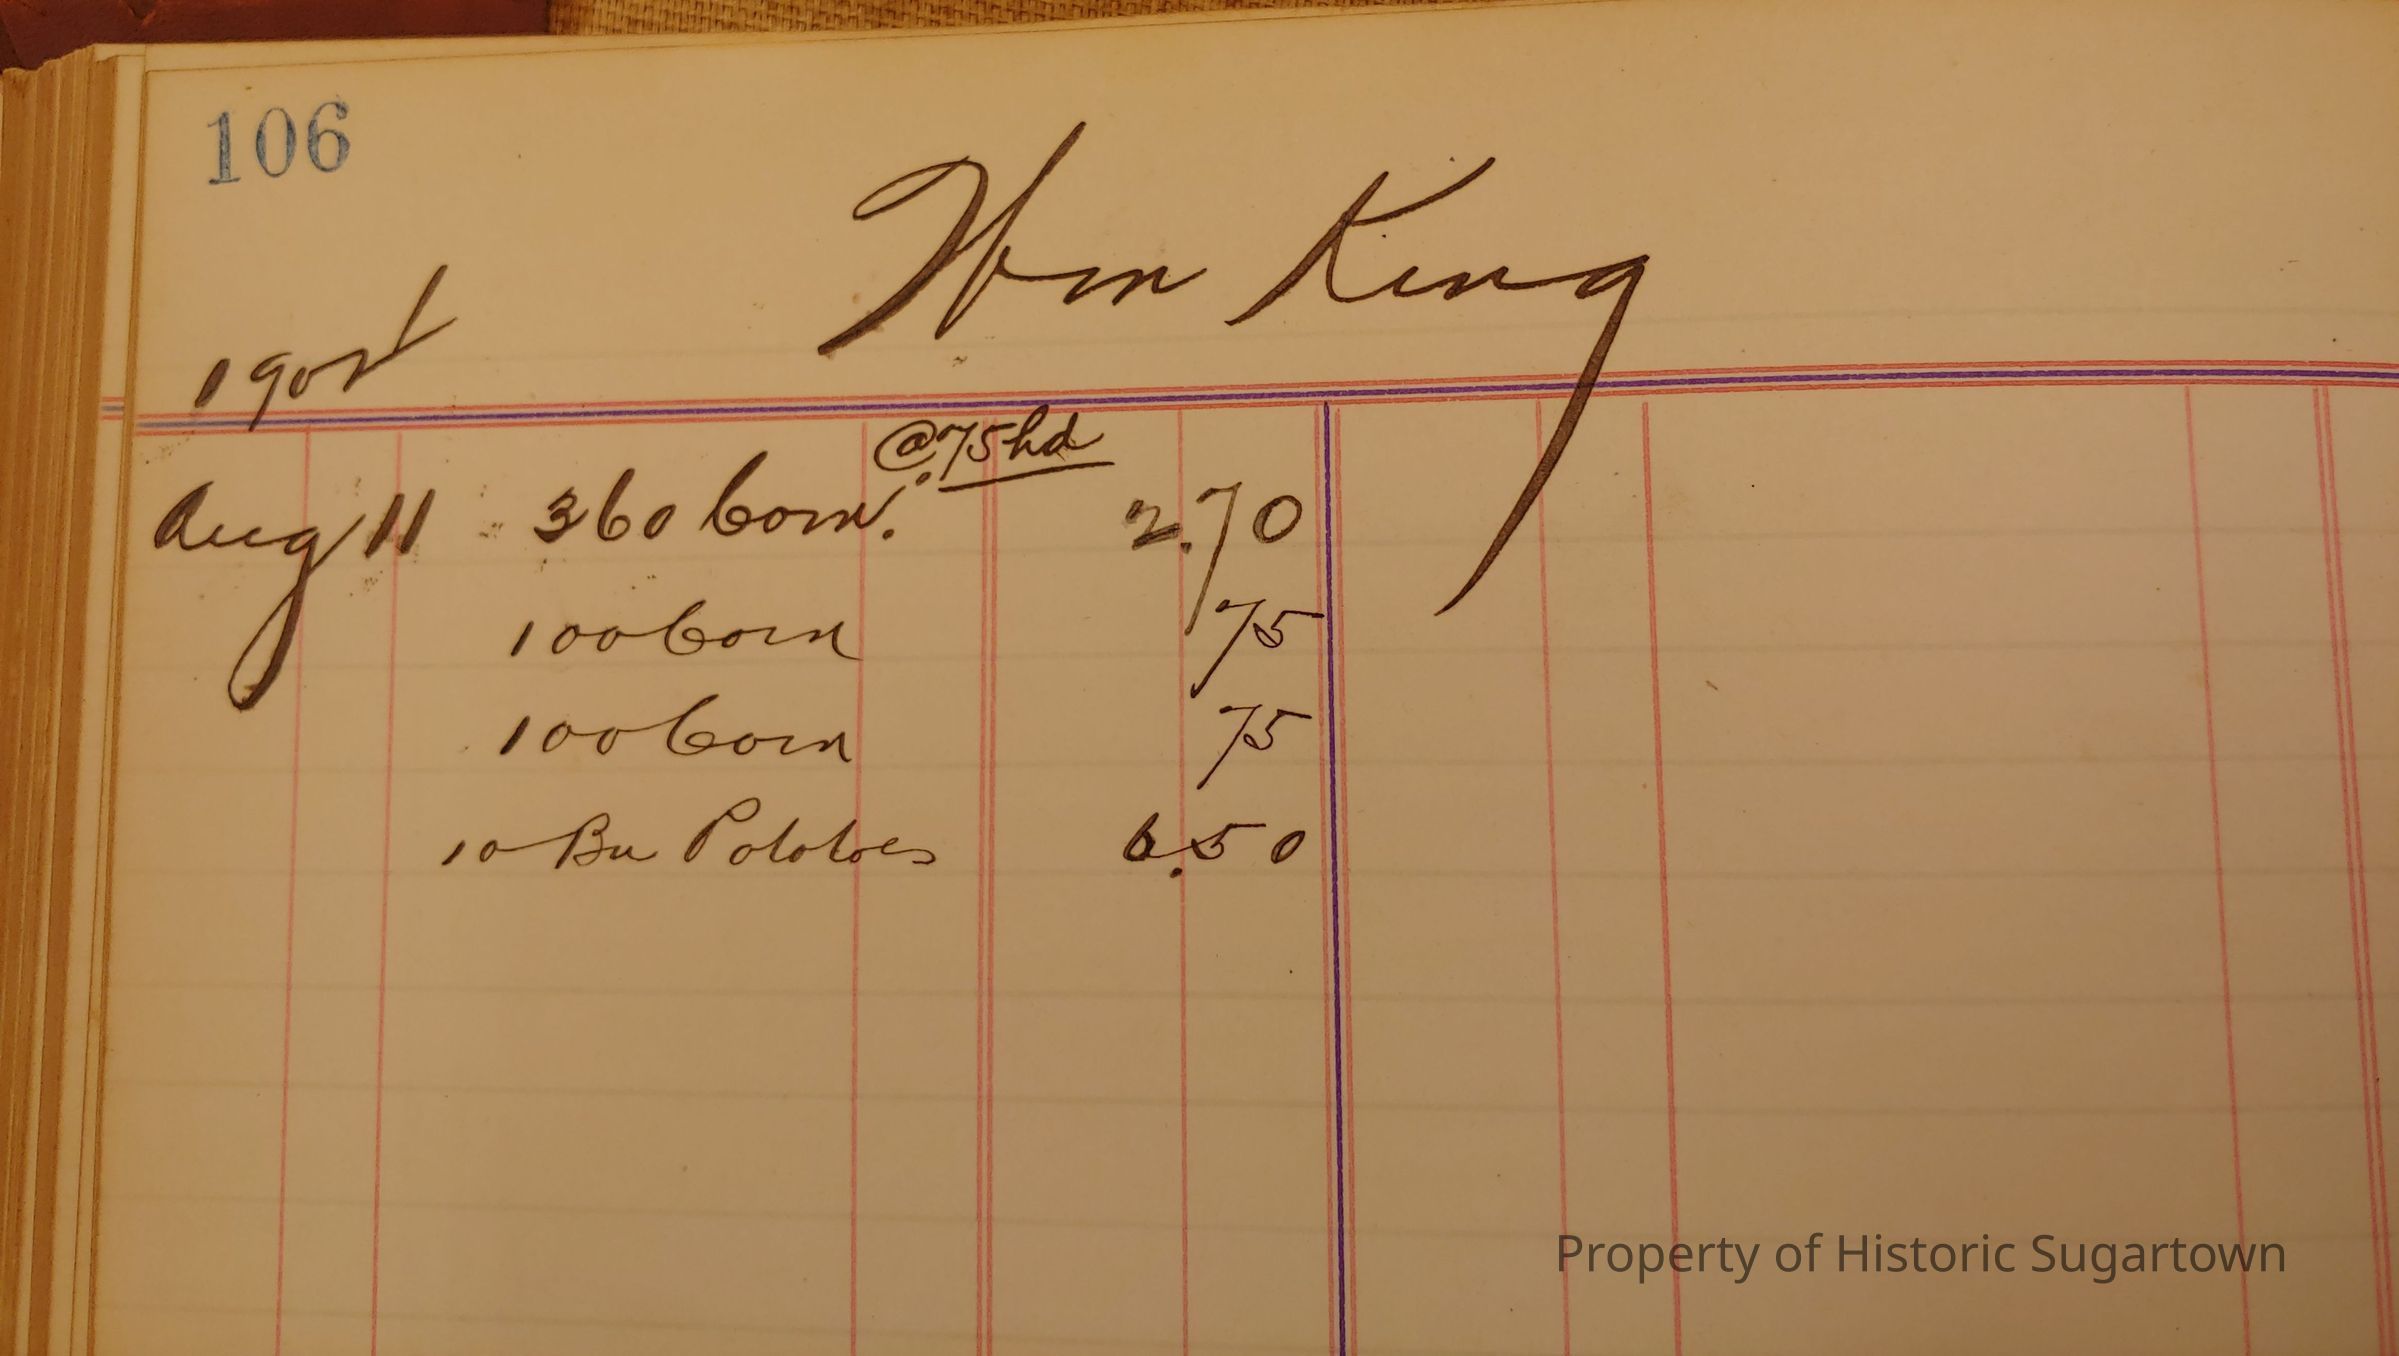 106
Wm King
1905
@75 hd
Aug 11 360 Corn. 2.70
100 Corn 75
100 Corn 75
10 Bu Potatoes 6.50
Property of Historic Sugartown